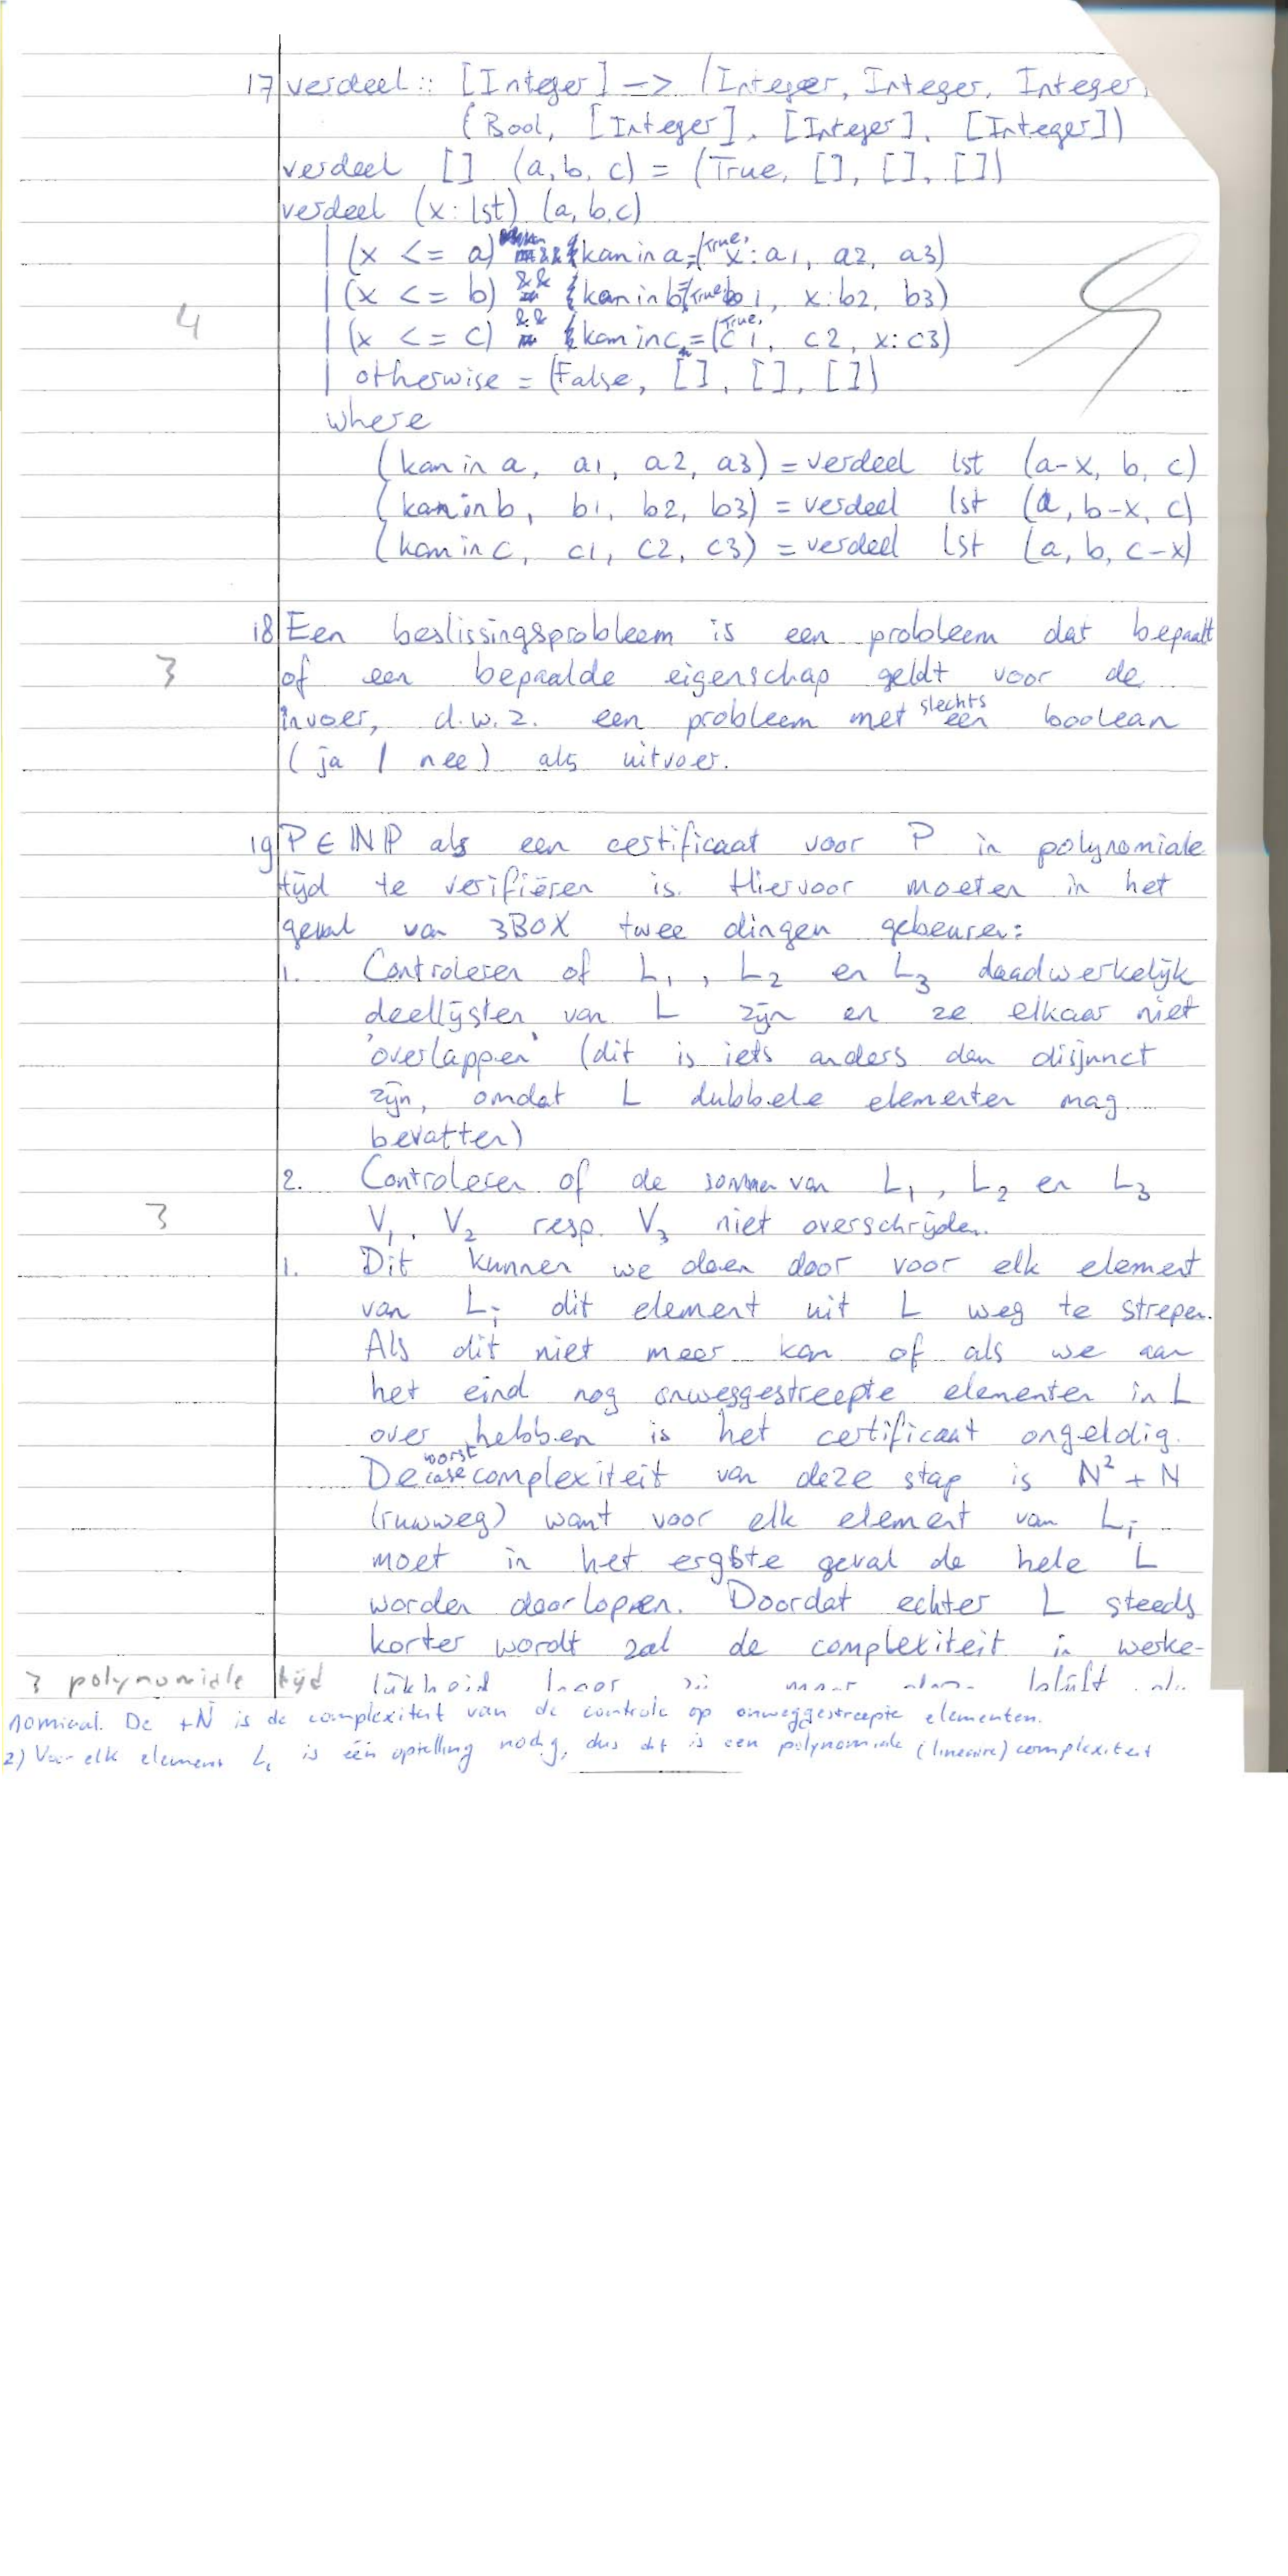 17 verdeel :: [Integer] -> (Integer, Integer, Integer)
(Bool, [Integer], [Integer], [Integer])
verdeel [] (a, b, c) = (True, [], [], [])
verdeel (x:lst) (a, b, c)
| (x <= a) && kan in a = (True, x:a1, a2, a3)
| (x <= b) && kan in b = (True, b1, x:b2, b3)
4
| (x <= c) && kan in c = (True, c1, c2, x:c3)
| otherwise = (False, [], [], [])
where
(kan in a, a1, a2, a3) = verdeel lst (a-x, b, c)
(kan in b, b1, b2, b3) = verdeel lst (a, b-x, c)
(kan in c, c1, c2, c3) = verdeel lst (a, b, c-x)
18 Een beslissingsprobleem is een probleem dat bepaalt
3 of een bepaalde eigenschap geldt voor de
invoer, d.w.z. een probleem met slechts een boolean
(ja / nee) als uitvoer.
19 P ∈ NP als een certificaat voor P in polynomiale
tijd te verifiëren is. Hiervoor moeten in het
geval van 3BOX twee dingen gebeuren:
1. Controleren of L1, L2 en L3 daadwerkelijk
deellijsten van L zijn en ze elkaar niet
'overlappen' (dit is iets anders dan disjunct
zijn, omdat L dubbele elementen mag
bevatten)
2. Controleren of de sommen van L1, L2 en L3
3 V1, V2 resp. V3 niet overschrijden.
1. Dit kunnen we doen door voor elk element
van Li dit element uit L weg te strepen.
Als dit niet meer kan of als we aan
het eind nog onweggestreepte elementen in L
over hebben is het certificaat ongeldig.
De worst case complexiteit van deze stap is N² + N
(ruwweg) want voor elk element van Li
moet in het ergste geval de hele L
worden doorlopen. Doordat echter L steeds
korter wordt zal de complexiteit in werke-
3 polynomiale tijd lijkheid blijft
nomiaal. De +N is de complexiteit van de controle op onweggestreepte elementen.
2) Voor elk element Li is één optelling nodig, dus dit is een polynomiale (lineaire) complexiteit